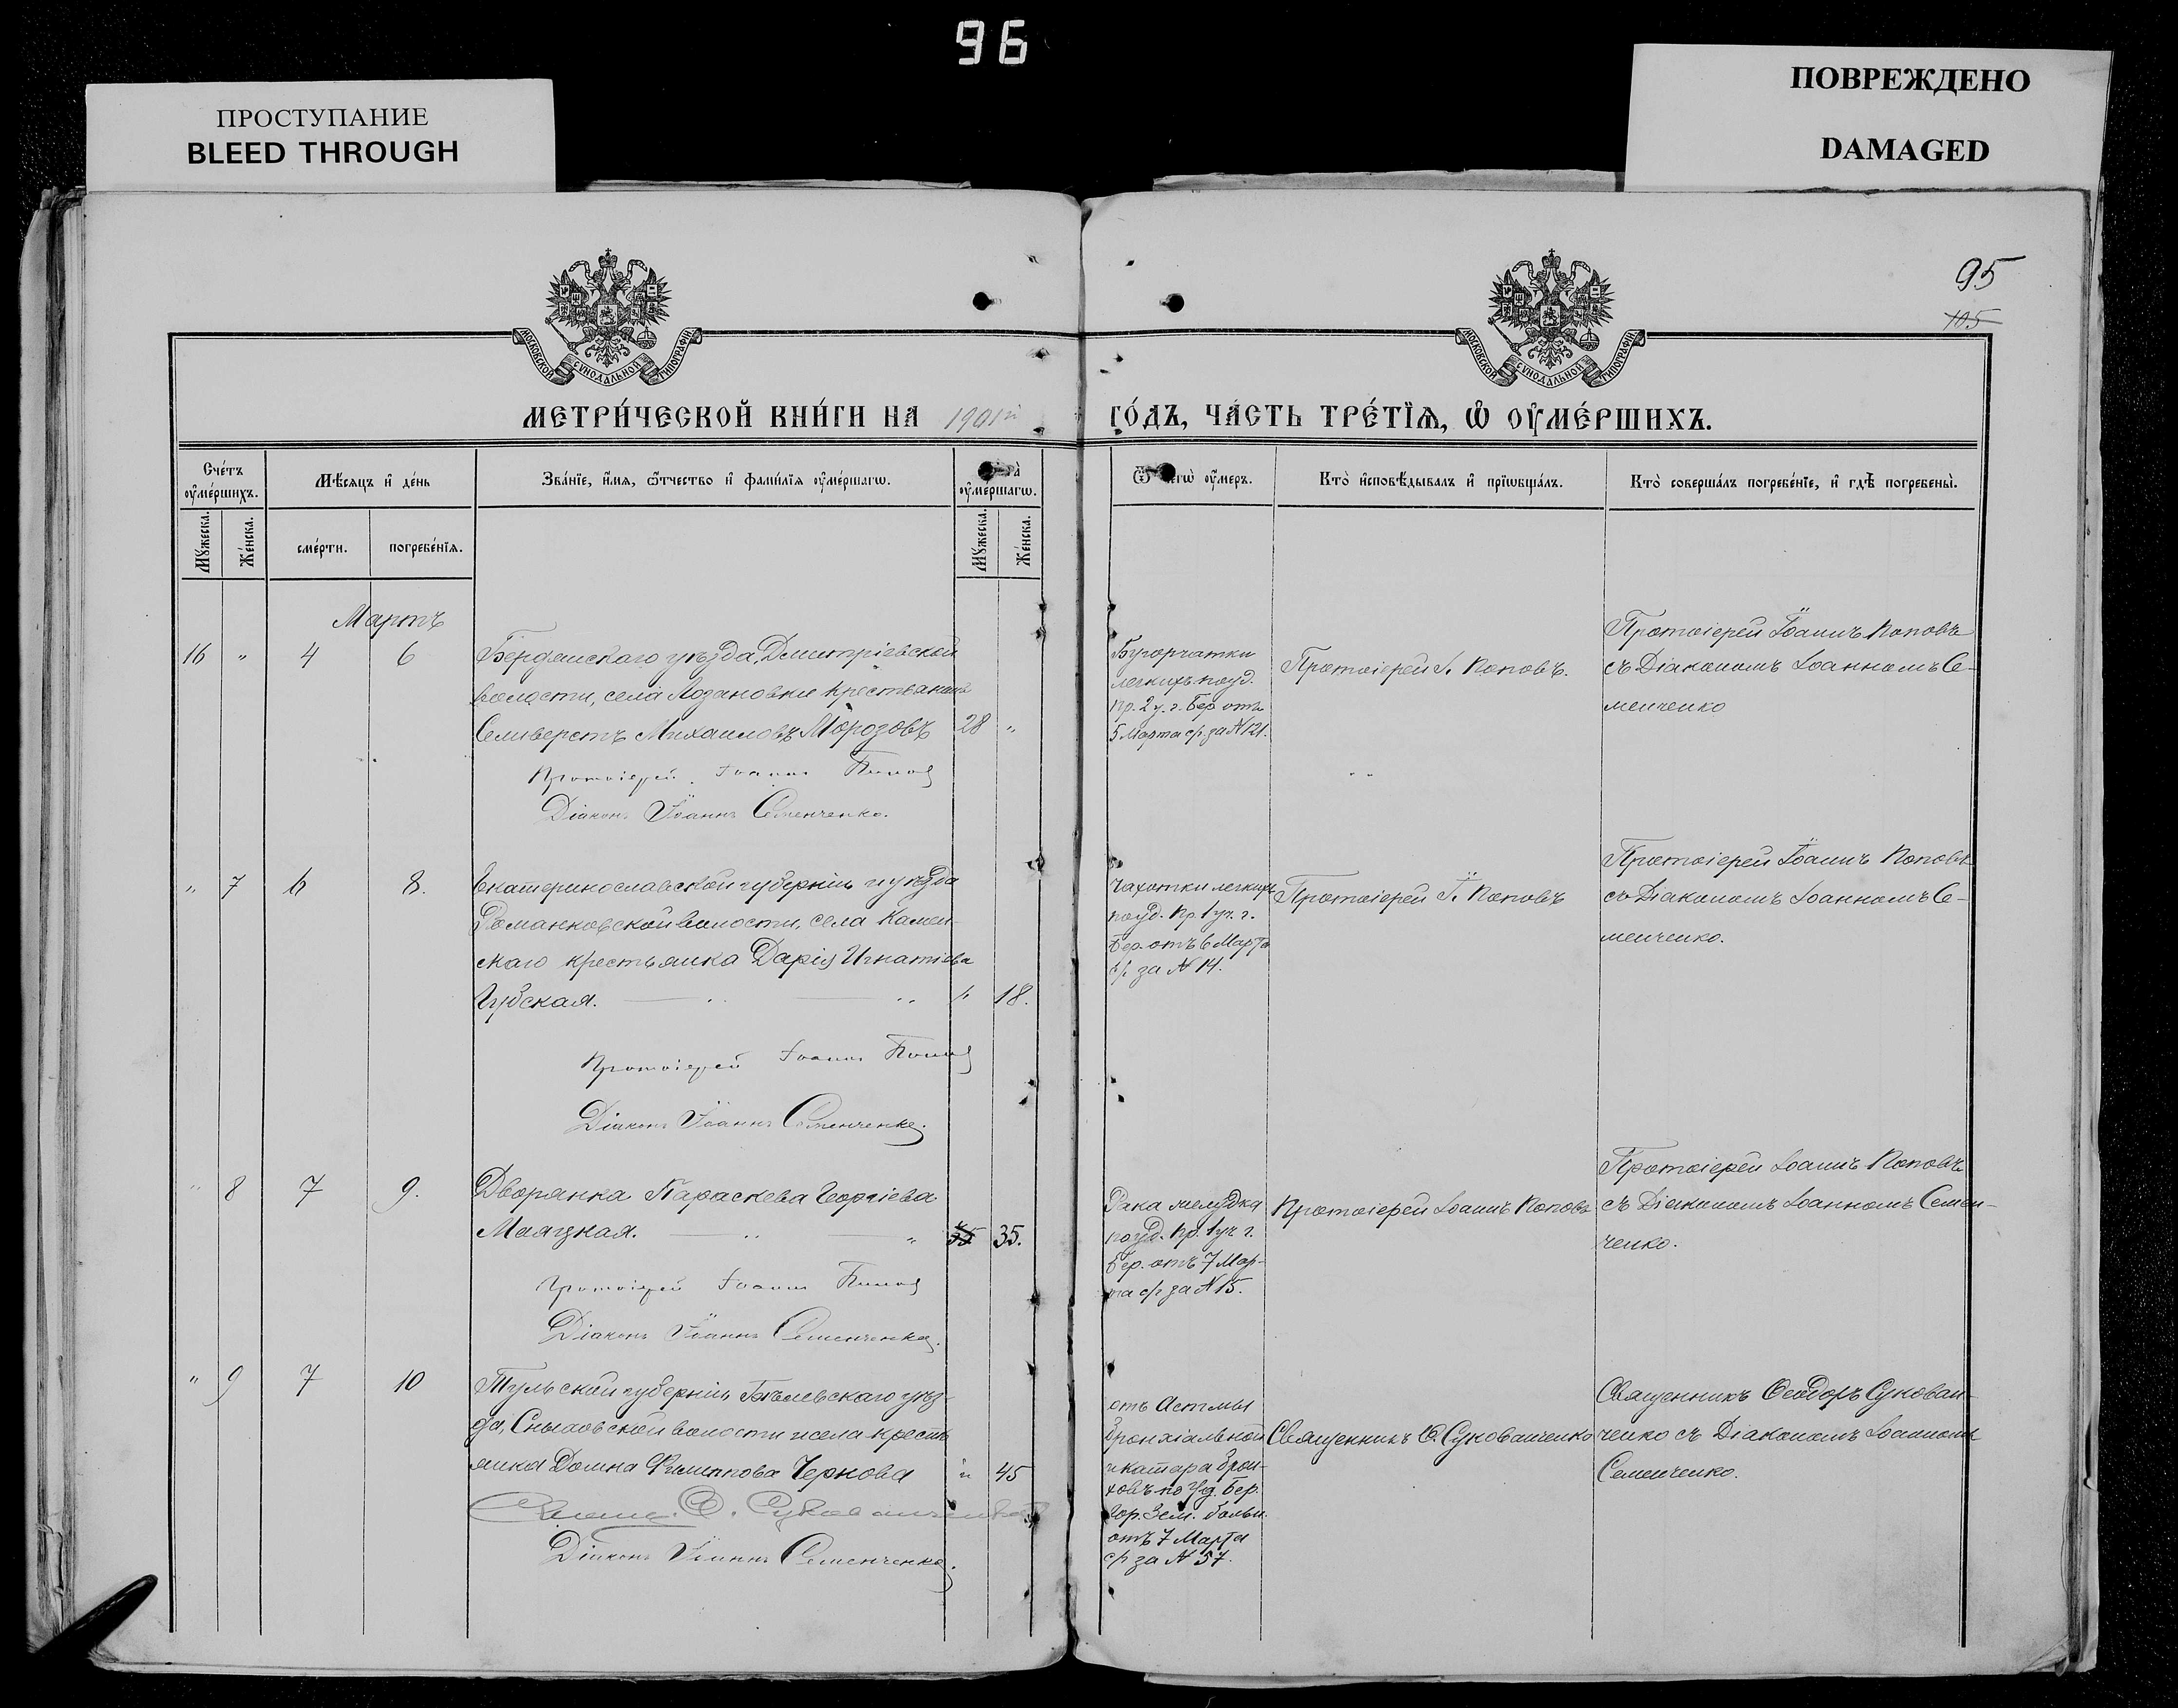 96
ПРОСТУПАНИЕ
BLEED THROUGH
ПОВРЕЖДЕНО
DAMAGED
95
105
МОСКОВСКОЙ СѴНОДАЛЬНОЙ ТИПОГРАФІИ
МОСКОВСКОЙ СѴНОДАЛЬНОЙ ТИПОГРАФІИ
МЕТРИ́ЧЕСКОЙ КНИ́ГИ НА 1901й ГО́ДЪ, ЧА́СТЬ ТРЕ́ТЇѦ, Ѡ҆ ОУ҆МЕ́РШИХЪ.
Сче́тъ оу҆ме́ршихъ.
Мѣ́сяцъ и҆ де́нь
Зва́нїе, и҆́мя, ѻ҆́тчество и҆ фами́лїя оу҆ме́ршагѡ.
оу҆ме́ршагѡ.
оу҆́меръ.
Кто̀ и҆сповѣ́дывалъ и҆ прїѡбща́лъ.
Кто̀ соверша́лъ погребе́нїе, и҆ гдѣ̀ погребены̀.
Мꙋ́жеска.
Же́нска.
сме́рти.
погребе́нїя.
Мꙋ́жеска.
Же́нска.
Мартъ
16 " 4 6
Бердянскаго уѣзда, Дмитріевской
волости, села Лозановки крестьянинъ
Селиверстъ Михаиловъ Морозовъ 28 "
Протоіерей Іоаннъ Поповъ
Діаконъ Іоаннъ Семенченко.
Бугорчатки
легкихъ поуд.
Пр. 2 у. г. Бер. отъ
5 Марта с/г. за № 121.
Протоіерей І. Поповъ.
Протоіерей Іоаннъ Поповъ
съ Діакономъ Іоанномъ Се-
менченко
" 7 6 8.
Екатеринославской губерніи и уѣзда
Романковской волости, села Камен-
скаго крестьянка Дарія Игнатіева
Губская. " 18.
Протоіерей Іоаннъ Поповъ
Діаконъ Іоаннъ Семенченко.
Чахотки легкихъ
поуд. Пр. 1 уч. г.
Бер. отъ 6 Марта
с/г за № 14.
Протоіерей І. Поповъ
Протоіерей Іоаннъ Поповъ
съ Діакономъ Іоанномъ Се-
менченко.
" 8 7 9.
Дворянка Параскева Георгіева
Маяцкая. " 35 35.
Протоіерей Іоаннъ Поповъ
Діаконъ Іоаннъ Семенченко.
Рака желудка
поуд. Пр. 1 уч. г.
Бер. отъ 7 Мар-
та с/г за № 15.
Протоіерей Іоаннъ Поповъ
Протоіерей Іоаннъ Поповъ
съ Діакономъ Іоанномъ Семен-
ченко.
" 9 7 10
Тульской губерніи, Бѣлевскаго уѣз-
да, волости и села кресть
янка Домна Филиппова Чернова " 45
Свящ. Ѳ. Сукованченко
Діаконъ Іоаннъ Семенченко.
отъ Астмы
бронхіальной
и катара брон-
ховъ по уд. Бер.
Гор. Зем. больн.
отъ 7 Марта
с/г за № 57.
Священникъ Ѳ. Сукованченко
Священникъ Ѳеодоръ Сукован-
ченко съ Діакономъ Іоанномъ
Семенченко.